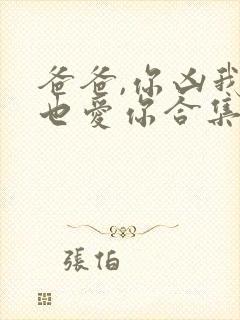 爸爸,你凶我
也爱你合集
張伯